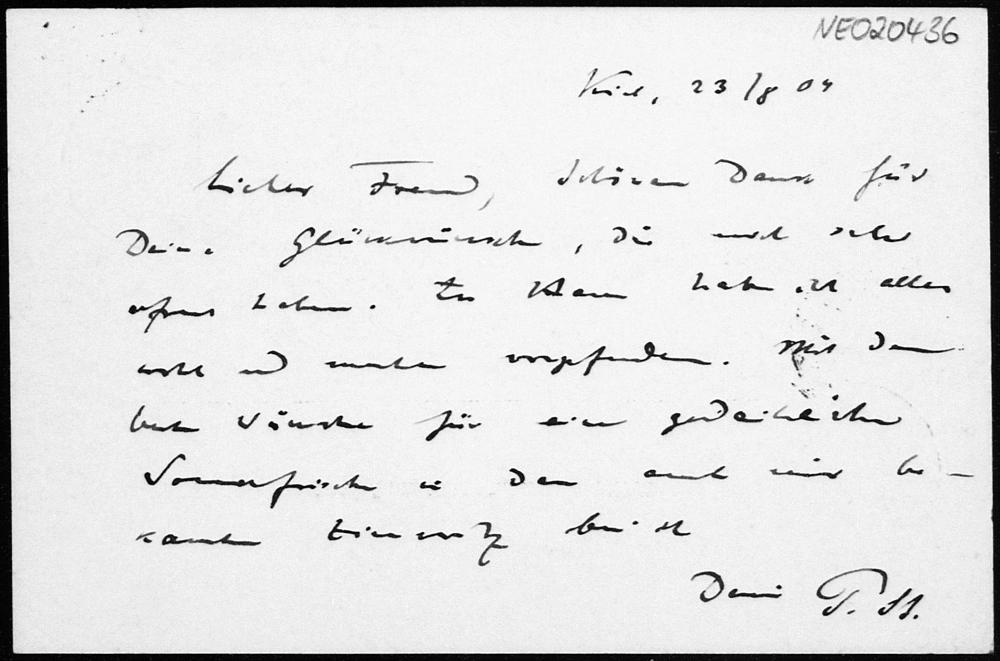 NE020436
Kiel, 23/8 04
Lieber Freund, schönen Dank für
Deine Glückwünsche, die mich sehr
erfreut haben. Zu Hause habe ich alles
wohl und munter vorgefunden. Mit den
besten Wünschen für eine gedeihliche
Sommerfrische in dem auch mir be-
kannten bin ich
Dein P. St.